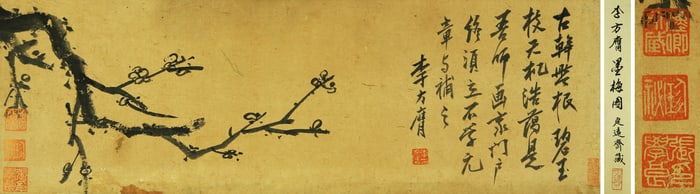 古幹盤根碧玉
枝天机浩蕩是
吾师画家门户
终须立不学元
章与補之
李方膺
李方膺墨梅图 定遠齋藏